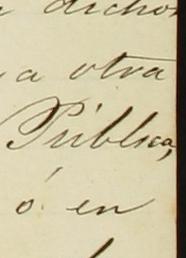 dichos
a otra
Pública,
ó en